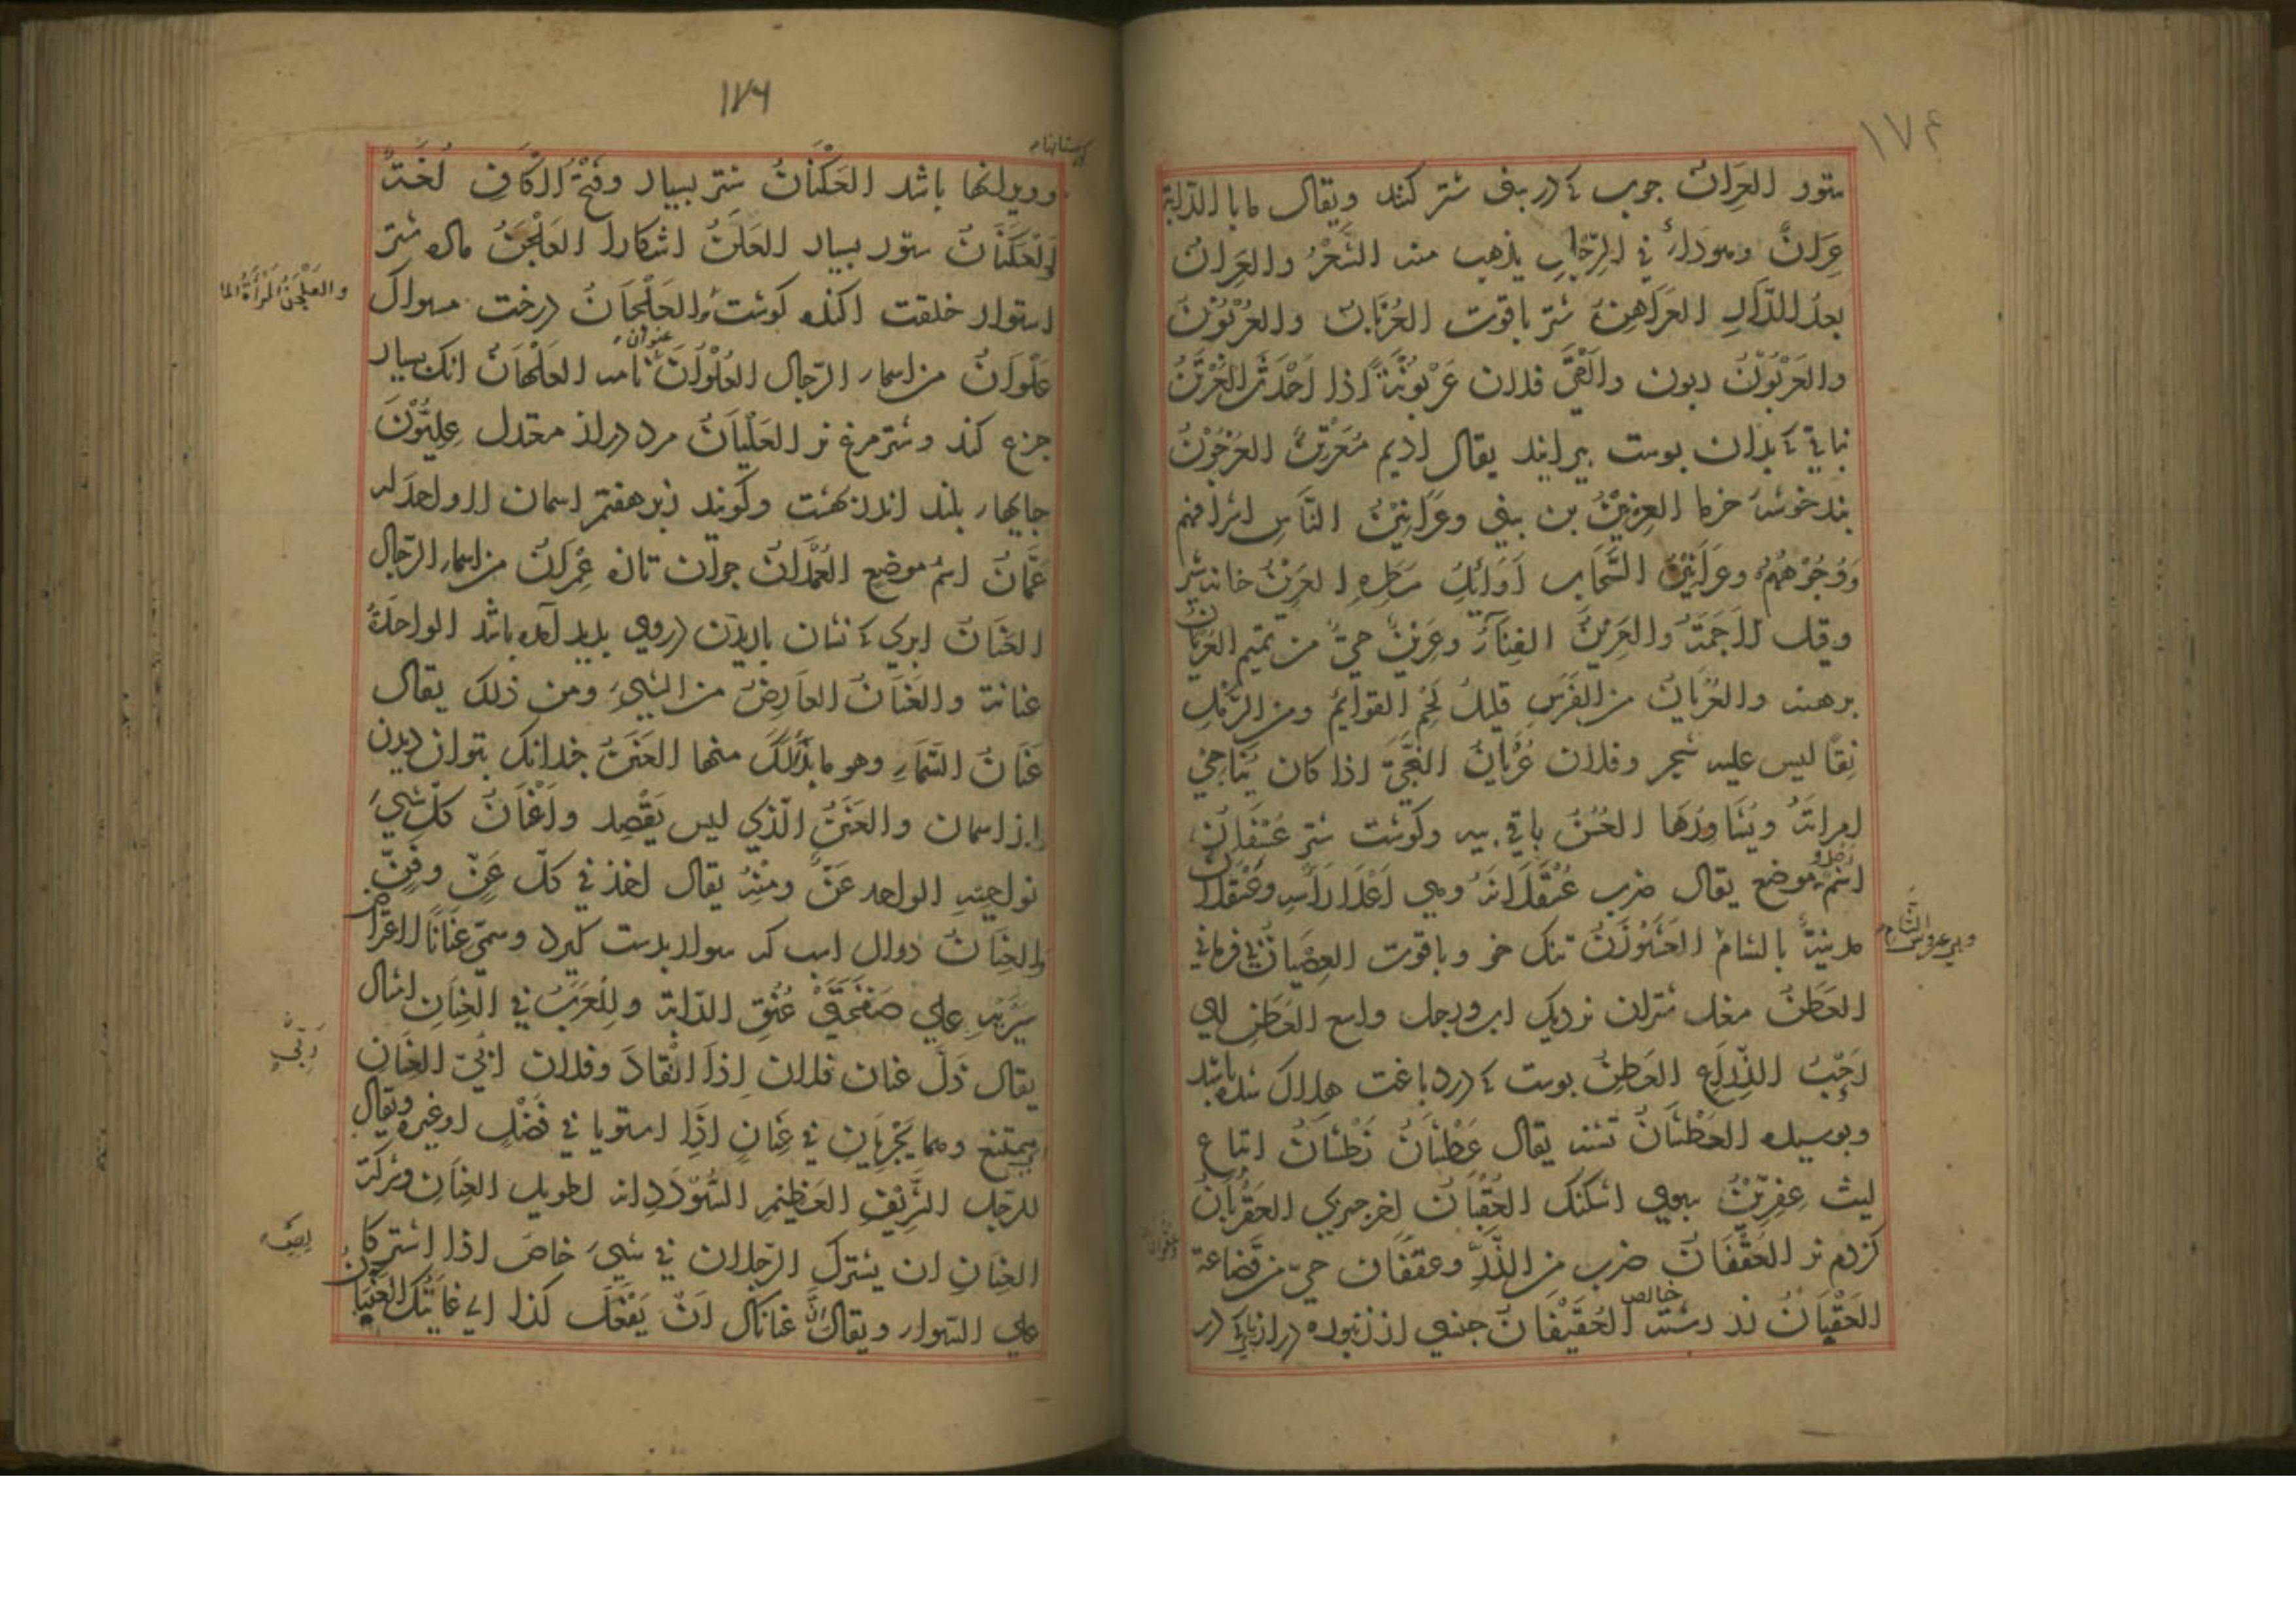 ۱۷۶
ستور العِرَانُ جوب که در بینی شتر کنند ویقال ما بالدّابّة
عِرَانٌ وهو داءٌ في الرِّجْلِ يذهب منه الشَّعْرُ والعِرَانُ
بعدُ الدّارِ العُرَاهِنُ شتر باقوت العُرْبَانُ والعُرْبُوْنُ
والعَرَبُوْنُ ربون والْقَى فلان عَرَبُوْنَهُ اذا اَحْدَثَ العَرْتَنُ
نباتي که بدان بوست بیرایند یقال ادیم مُعَرْتَنٌ العُرْجُوْنُ
بند خوشهٔ خرما العِرْنِيْنُ بن بینی وعَرَانِيْنُ النّاسِ اشرافهم
وَوُجُوْهُهُمْ وعَرَانِيْنُ السَّحَابِ اَوَائِلُ مَطَرِهِ العَرِيْنُ خانه شیر
وقیل الاَجَمَةُ والعَرِيْنُ الفِنَآءُ وعَرِيْنٌ حيٌّ من تميم العُرْيَانُ
برهنه والعُرْيَانُ من الفَرَسِ قليلُ لَحْمِ القوائِمِ ومن الرَّمْلِ
نِقًا ليس عليه شجر وفلان عُرْيَانُ النَّجِيِّ اذا كان يُنَاجِي
امراتَهُ ويُشَاوِرُهَا العُسْنُ باقي بيه وكوشت شتر عُسْفَانُ
اسْمُ موضع يقال ضرب عُسْقَلَانَهُ وهي اَعْلَا رَأْسِهِ وعَسْقَلَانُ
مدينةٌ بالشام العَشَوْزَنُ تنك خو وباقوت العِصْيَانُ بي فرماني
وهي عروس الشَّام
العَطَنُ مغل شتران نزديك اب ورجل واسع العَطَنِ اي
رَحْبُ الذِّرَاعِ العَطِنُ بوست که در دباغت هلاك شده باشد
وبوسيده العَطْشَانُ تشنه يقال عَطْشَانُ نَطْشَانُ اتباع
ليث عِفِرِّيْنُ اسكنك العُقْبَانُ اخر جيزي العُقْرُبَانُ
كزدم نر العُقْفَانُ ضرب من الذَّرِّ وعقفان حيّ من قضاعة
العِقْيَانُ زر رسته خالص العُقَيْفَانُ جنسي از زنبوره دراز باي که در
۱۷۶
وویرانها باشد العَكْنَانُ شتر بسيار وفَتْحُ الْكَافِ لُغَةٌ
والْعَكَنَانُ ستور بسيار العَلَنُ اشكارا العَلْجَنُ ماده شتر
استوار خلقت اكنده كوشت والعَلْجَانُ درخت مسواك
والعَلْجَنُ المَرْأَةُ الما
عَلْوَانُ من اسماء الرّجال العُلْوَانُ عنوان نامه العَلْهَانُ انك بسيار
جزع كند وشتر مرغ نر العَلْيَانُ مرد دراز معتدل عِلِّيُّوْنَ
جايهاء بلند اندر بهشت وكويند زبر هفتم اسمان لا واحد له
عَمَّانُ اسم موضع العُمْدَانُ جوان تازه عِمْرَانُ من اسماء الرّجال
العَنَانُ ابري که نشان باريدن در وي بديد آمده باشد الواحدةُ
عنانة والعَنَانُ العَارِضُ من الشيء ومن ذلك يقال
عَنَانُ السَّمَاءِ وهو ما بدا لَكَ منها العَنَنُ جندانك بتوان ديدن
از اسمان والعَنَنُ الّذي ليس بقَصْد واَعْنَانُ كلّ شيء
نواحيه الواحد عَنٌّ ومِنْهُ يقال اخذ في كلّ عَنٍّ وفَنٍّ
والعِنَانُ دوال اسب که سوار بدست كيرد وسمّي عِنَانًا لاعتراض
سَيْرَيْهِ علي صَفْحَتَيْ عُنُقِ الدّابّة ولِلْعَرَبُ في العِنَانِ امثال
يقال ذَلَّ عنان فلان اِذَا انْقَادَ وفلان ابيّ العِنَانِ
يمتنع وهما يَجْرِيَانِ في عِنَانٍ اذَا استويا في فَضْلٍ اوغيره ويقال
للرّجل الشَّرِيْفِ العَظِيْمِ السُّوْدَدِ انه لطويل العِنَانِ وشركة
العِنَانِ ان يشترك الرّجلان في شيء خاص اذا اشتركا
علي السّواء ويقال عنانك اَنْ يَفْعَلَ كذا اي غايَتُكَ العِنْيَانُ